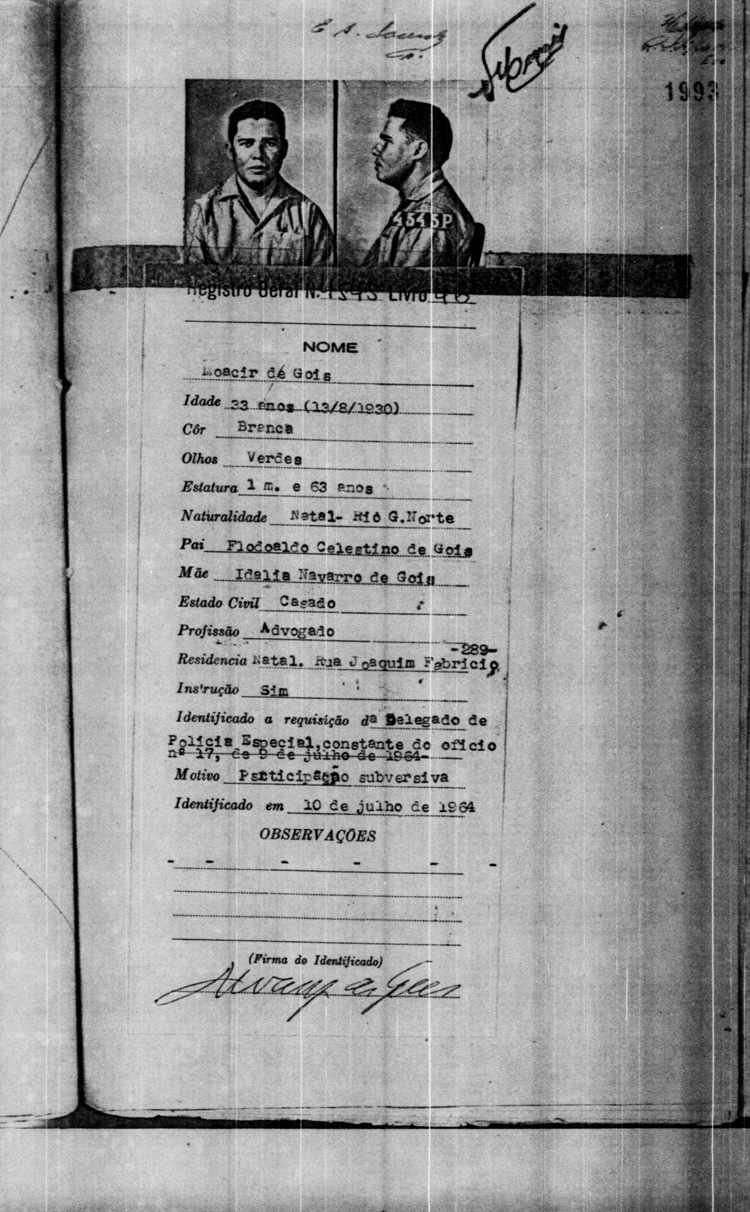 1993
4545P
Registro Geral N. 1545 Livro 46
NOME
Moacir de Gois
Idade 33 anos (13/8/1930)
Côr Branca
Olhos Verdes
Estatura 1 m. e 63 anos
Naturalidade Natal- Rio G.Norte
Pai Flodoaldo Celestino de Gois
Mãe Idalia Navarro de Gois
Estado Civil Casado
Profissão Advogado
-289-
Residencia Natal. Rua Joaquim Fabricio,
Instrução Sim
Identificado a requisição da Delegado de
Policia Especial,constante do oficio
nº 17, de 9 de julho de 1964-
Motivo Participação subversiva
Identificado em 10 de julho de 1964
OBSERVAÇÕES
- - - - - -
(Firma do Identificado)